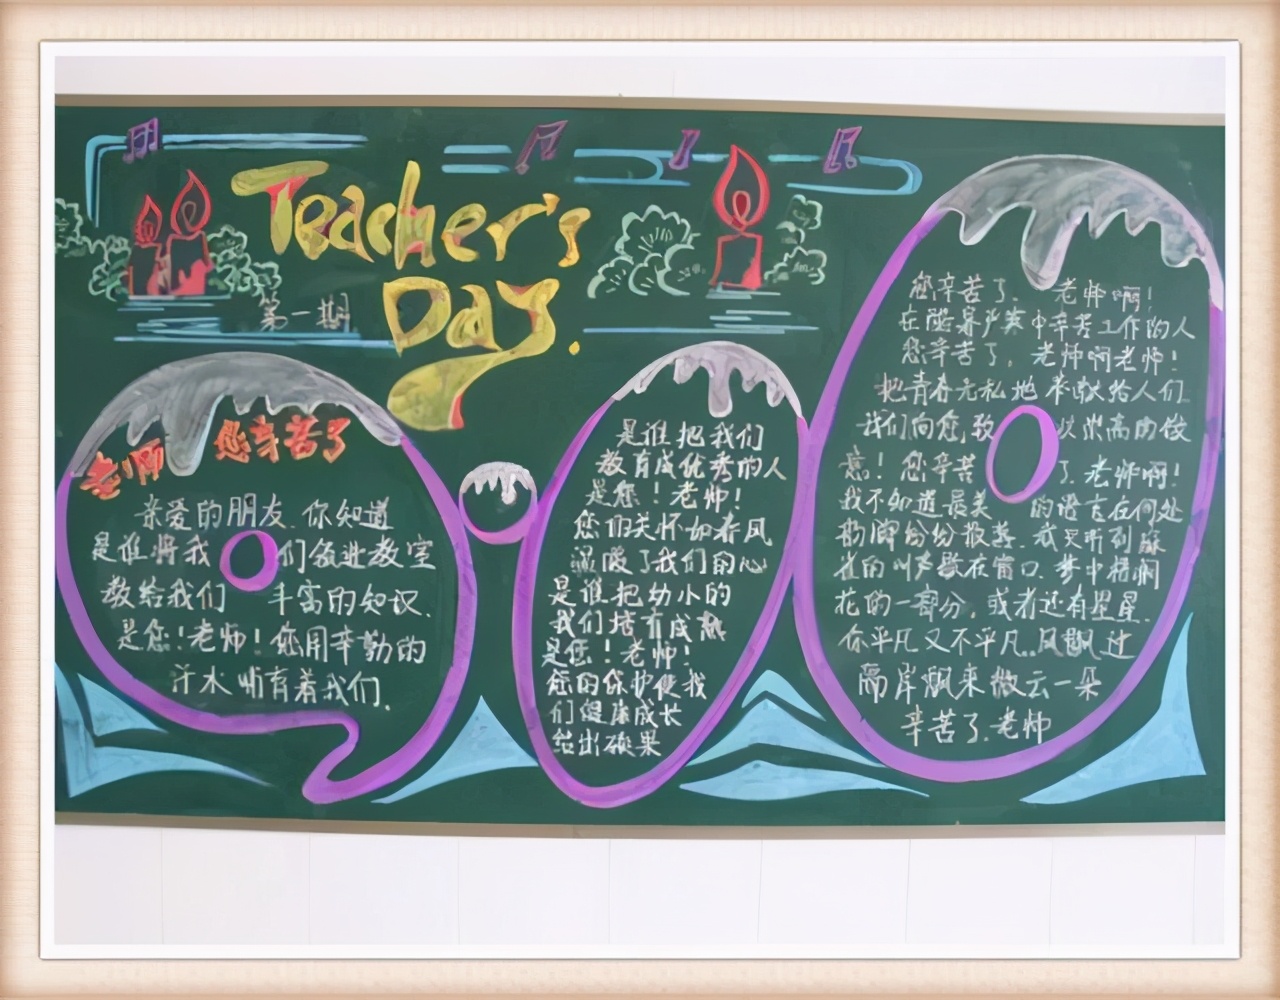 Teacher's
Day.
第一期
老师 您辛苦了
亲爱的朋友 你知道
是谁将我们领进教室
教给我们 丰富的知识.
是您!老师! 您用辛勤的
汗水哺育着我们.
是谁把我们
教育成优秀的人
是您!老师!
您的关怀如春风
温暖了我们的心
是谁把幼小的
我们培育成
是您!老师!
您的保护使我
们健康成长
结出硕果
您辛苦了. 老师啊!
在酷暑严寒中辛苦工作的人
您辛苦了, 老师啊老师!
把青春无私地奉献给人们
我们向您致 以崇高的敬
意! 您辛苦 了. 老师啊!
我不知道最美 的语言在何处
纷纷散落. 我只听到麻
雀的叫声歇在窗口. 梦中梧桐
花的一部分. 或者还有星星.
你平凡又不平凡..风飘过
隔岸飘来微云一朵
辛苦了.老师